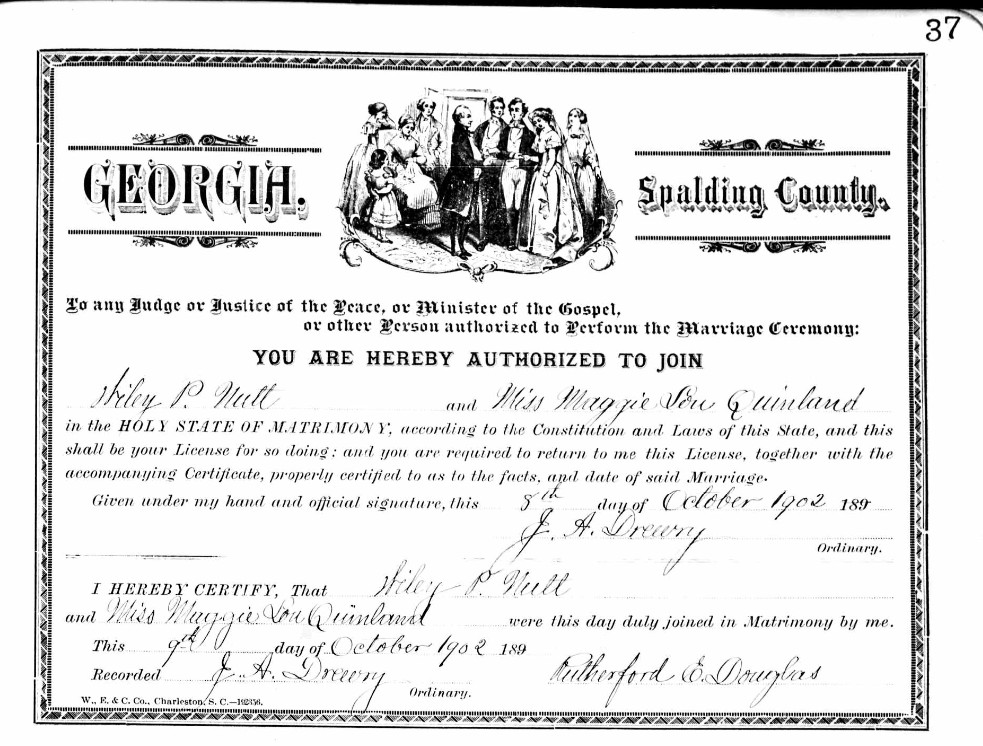 37
GEORGIA. Spalding County.
To any Judge or Justice of the Peace, or Minister of the Gospel,
or other Person authorized to Perform the Marriage Ceremony:
YOU ARE HEREBY AUTHORIZED TO JOIN
Wiley P. Nutt and Miss Maggie Lou Quinland
in the HOLY STATE OF MATRIMONY, according to the Constitution and Laws of this State, and this
shall be your License for so doing; and you are required to return to me this License, together with the
accompanying Certificate, properly certified to as to the facts, and date of said Marriage.
Given under my hand and official signature, this 8th day of October 1902 189
J. A. Drewry
Ordinary.
I HEREBY CERTIFY, That Wiley P. Nutt
and Miss Maggie Lou Quinland were this day duly joined in Matrimony by me.
This 9th day of October 1902 189
Recorded J. A. Drewry Rutherford E. Douglas
Ordinary.
W., E. & C. Co., Charleston, S. C.—192356.